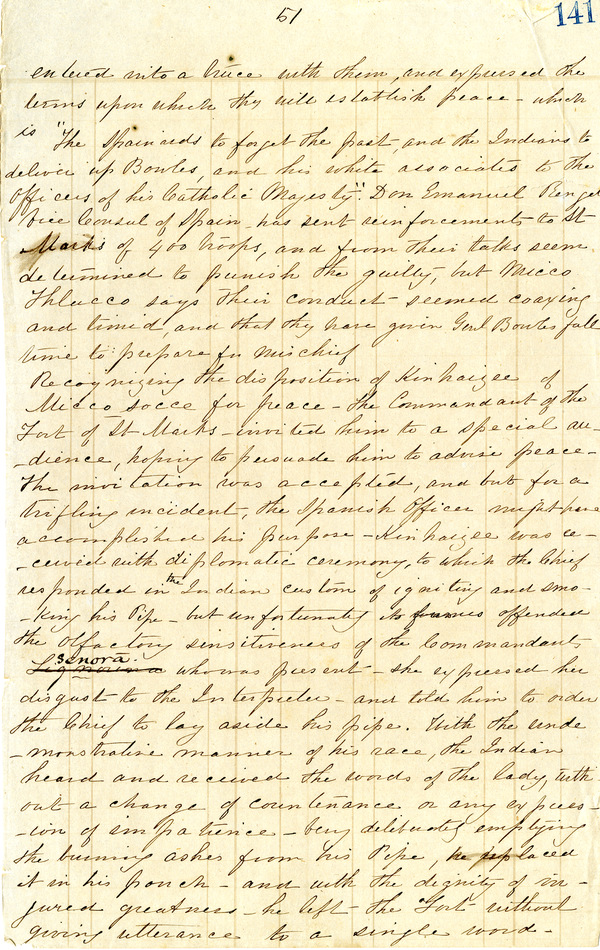 51
141
entered into a truce with them, and expressed the
terms upon which they will establish peace - which
is "The Spainards to forget the past, and the Indians to
deliver up Bowles, and his white associates to the
Officers of his Catholic Majesty". Don Emanuel Rengel
Vice Consul of Spain - has sent reinforcements to St
Marks of 400 troops, and from their talks seem
determined to punish the guilty, but Micco
Thlucco says their conduct - seemed coaxing
and timid, and that they have given Genl Bowles full
time to prepare for mischief
Recognizing the disposition of Kinhaizee of
Micco socce for peace - the Commandant of the
Fort of St Marks - invited him to a special au-
-dience, hoping to persuade him to advise peace -
The invitation was accepted, and but for a
trifling incident, the Spanish Officer might have
accomplished his purpose - Kinhaizee was re-
-ceived with diplomatic ceremony, to which the Chief
responded in the Indian custom of igniting and smo-
-king his Pipe - but unfortunately its fumes offended
the Olfactory sensitiveness of the Commandants
Senora. who was present - she expressed her
disgust to the Interpreter - and told him to order
the Chief to lay aside his pipe. With the unde
-monstrative manner of his race, the Indian
heard and received the words of the lady, with-
out a change of countenance or any express-
-ion of impatience - bery deliberately emptying
the burning ashes from his Pipe, he replaced
it in his pouch - and with the dignity of in-
jured greatness - he left - the Fort without
giving utterance to a single word -